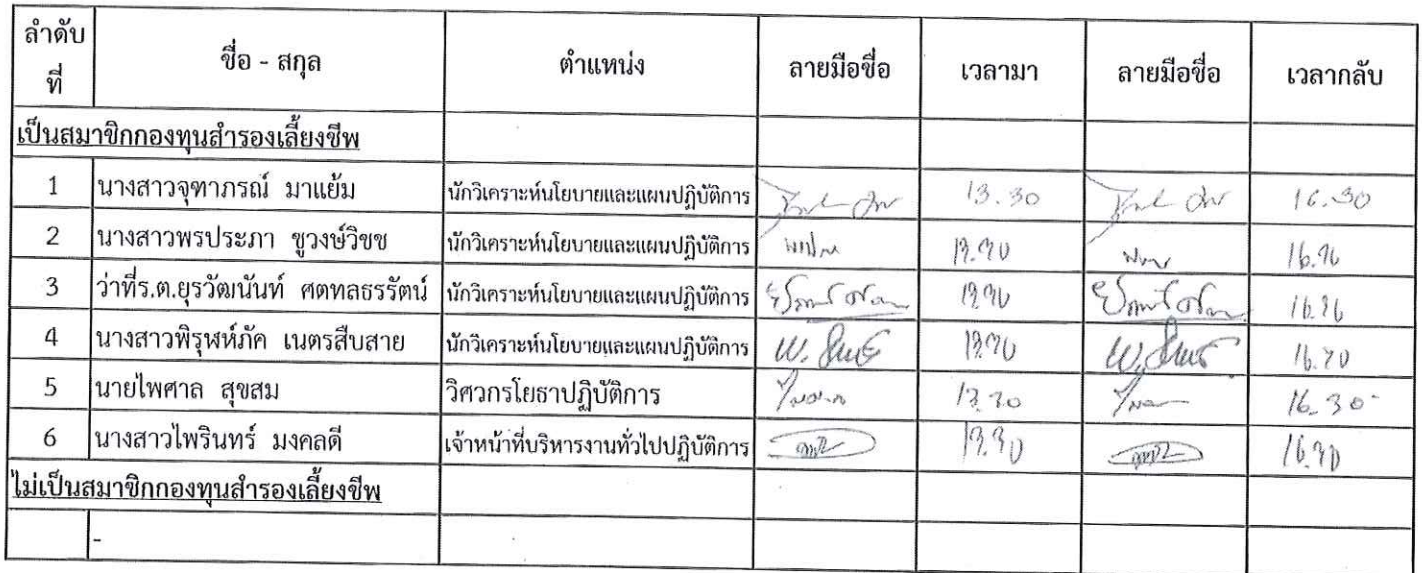 ลำดับที่ ชื่อ - สกุล ตำแหน่ง ลายมือชื่อ เวลามา ลายมือชื่อ เวลากลับ
เป็นสมาชิกกองทุนสำรองเลี้ยงชีพ
1 นางสาวจุฑาภรณ์ มาแย้ม นักวิเคราะห์นโยบายและแผนปฏิบัติการ 13.30 16.30
2 นางสาวพรประภา ชูวงษ์วิชช นักวิเคราะห์นโยบายและแผนปฏิบัติการ 13.30 16.30
3 ว่าที่ร.ต.ยุรวัฒนันท์ ศตทลธรรัตน์ นักวิเคราะห์นโยบายและแผนปฏิบัติการ 13.30 16.30
4 นางสาวพิรุฬห์ภัค เนตรสืบสาย นักวิเคราะห์นโยบายและแผนปฏิบัติการ 13.30 16.30
5 นายไพศาล สุขสม วิศวกรโยธาปฏิบัติการ 13.30 16.30
6 นางสาวไพรินทร์ มงคลดี เจ้าหน้าที่บริหารงานทั่วไปปฏิบัติการ 13.30 16.30
ไม่เป็นสมาชิกกองทุนสำรองเลี้ยงชีพ
-